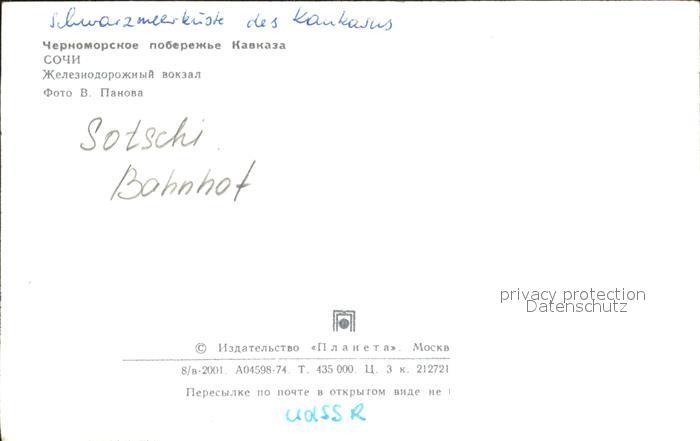 Schwarzmeerküste des Kaukasus
Черноморское побережье Кавказа
СОЧИ
Железнодорожный вокзал
Фото В. Панова
Sotschi
Bahnhof
privacy protection
Datenschutz
© Издательство «Планета». Москв
8/в-2001. А04598-74. Т. 435 000. Ц. 3 к. 212721
Пересылке по почте в открытом виде не
UdSSR